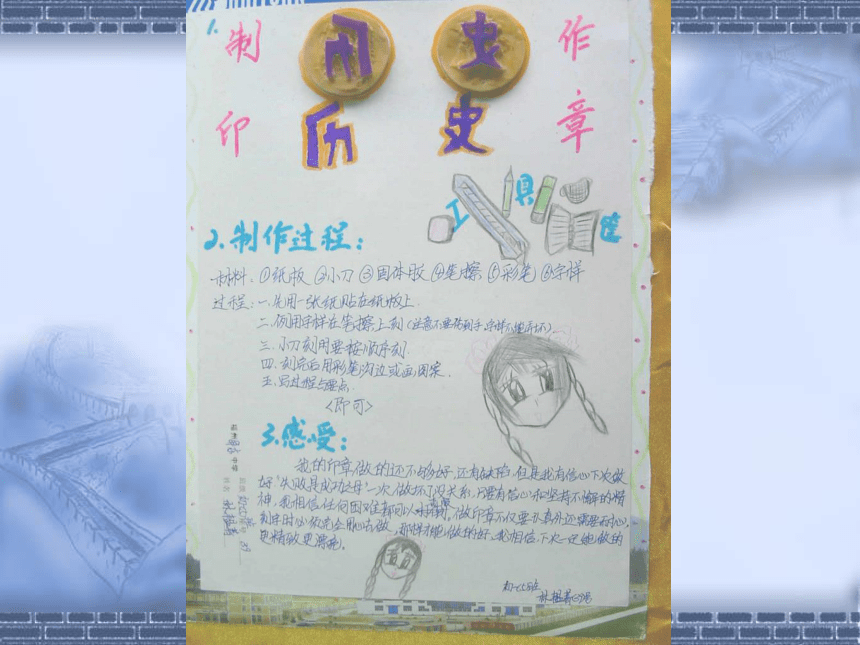 1.
制 历 史 作
印 历 史 章
工 具 篮
2.制作过程：
材料：①纸板 ②小刀 ③固体胶 ④笔擦 ⑤彩笔 ⑥字样
过程：一.先用一张纸贴在纸板上
二.例用字样在笔擦上刻（注意不要伤到手，字样不要弄坏）
三.小刀刻用要按顺序刻.
四.刻完后用彩笔沟边或画图案.
五.写过程与要点.
<即可>
3.感受：
我的印章做的还不够好,还有缺陷,但是我有信心下次做
好"失败是成功之母"一次做坏了没关系,只要有信心和坚持不懈的精
神,我相信任何困难都可以,做印章不仅要认真外还需要耐心,
制字时心依完全用心去做,那样才能做的好.我相信,下次一定能做的
更精致更漂亮。
中学
班级
姓名
初一